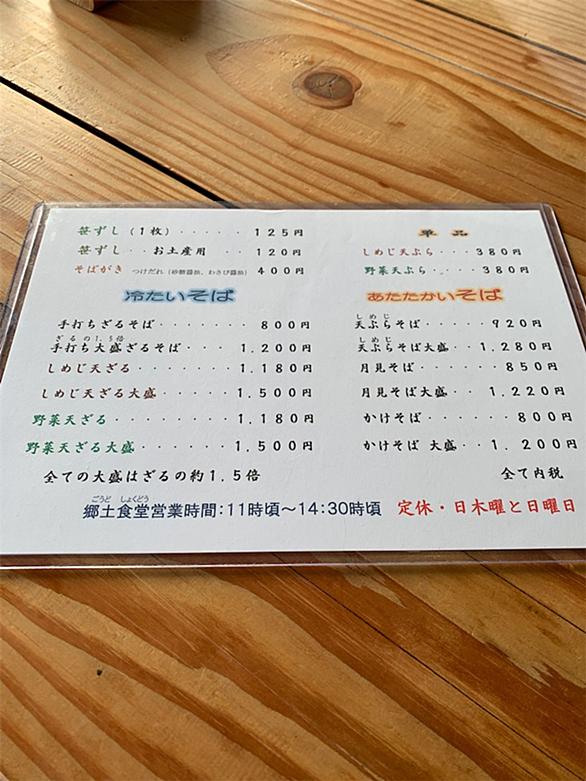 笹ずし（1枚）・・・・・・125円
笹ずし・・お土産用・・・・120円
そばがき つけだれ（砂糖醤油、わさび醤油）400円
冷たいそば
手打ちざるそば・・・・・・・800円
ざるの1.5倍
手打ち大盛ざるそば・・・1,200円
しめじ天ざる・・・・・・・1,180円
しめじ天ざる大盛・・・・・1,500円
野菜天ざる・・・・・・・・1,180円
野菜天ざる大盛・・・・・・1,500円
全ての大盛はざるの約1.5倍
単品
しめじ天ぷら・・・380円
野菜天ぷら・・・・380円
あたたかいそば
しめじ
天ぷらそば・・・・920円
しめじ
天ぷらそば大盛・・1,280円
月見そば・・・・・・850円
月見そば大盛・・・1,220円
かけそば・・・・・・800円
かけそば 大盛・・1,200円
全て内税
ごうど しょくどう
郷土食堂営業時間：11時頃～14:30時頃 定休・日木曜と日曜日